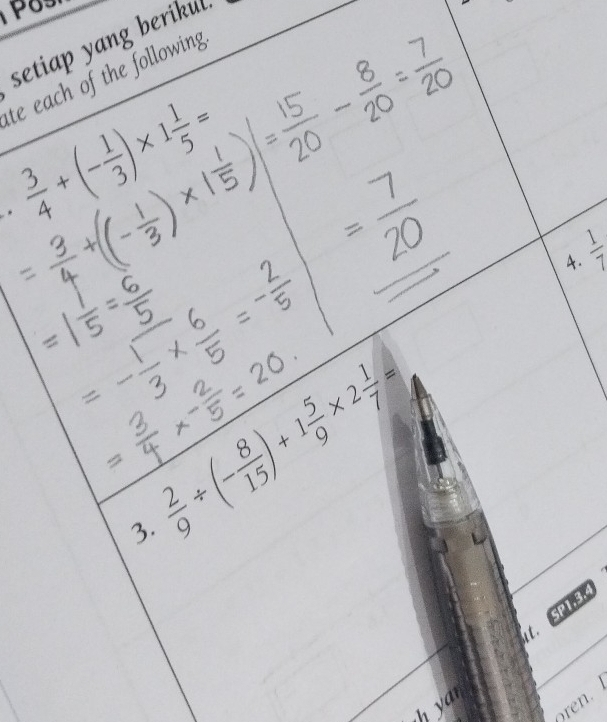 setiap yang berikut.
ate each of the following.
3/4 + (-1/3) × 1 1/5 =
= 3/4 + ((-1/3) × 1 1/5)
= 1 1/5 = 6/5
= -1/3 × 6/5 = -2/5
= 3/4 × -2/5 = 20.
= 15/20 - 8/20 = 7/20
= 7/20
3. 2/9 ÷ (-8/15) + 1 5/9 × 2 1/7 =
4. 1/7
SP1.3.4